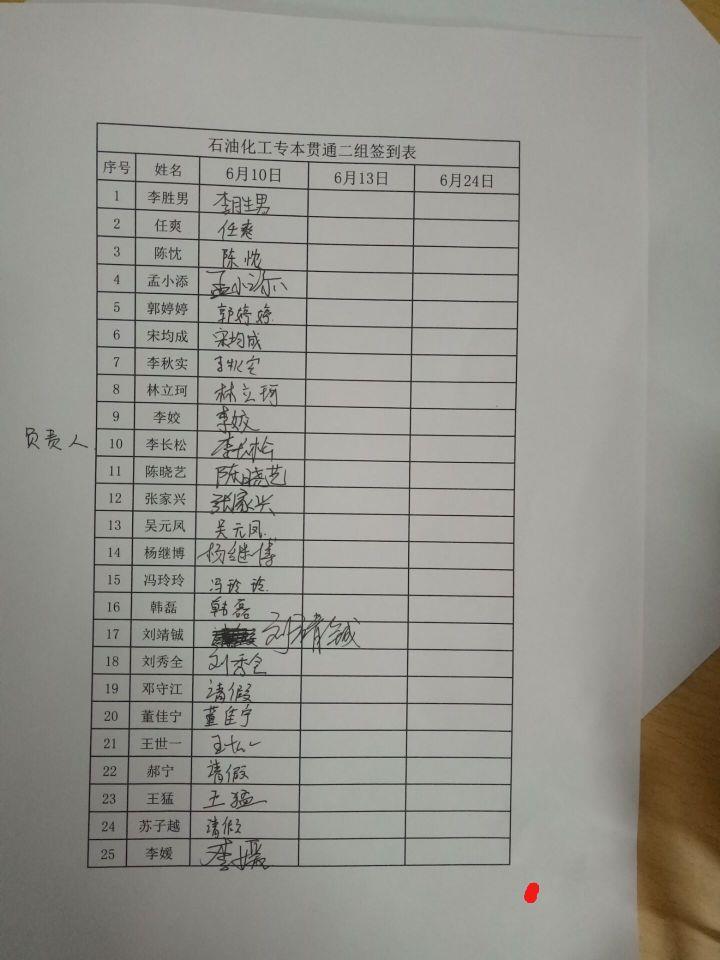 石油化工专本贯通二组签到表
序号 姓名 6月10日 6月13日 6月24日
1 李胜男 李胜男
2 任爽 任爽
3 陈忱 陈忱
4 孟小添 孟小添
5 郭婷婷 郭婷婷
6 宋均成 宋均成
7 李秋实 李秋实
8 林立珂 林立珂
9 李姣 李姣
负责人 10 李长松 李长松
11 陈晓艺 陈晓艺
12 张家兴 张家兴
13 吴元凤 吴元凤
14 杨继博 杨继博
15 冯玲玲 冯玲玲
16 韩磊 韩磊
17 刘靖铖 刘靖铖
18 刘秀全 刘秀全
19 邓守江 请假
20 董佳宁 董佳宁
21 王世一 王世一
22 郝宁 请假
23 王猛 王猛
24 苏子越 请假
25 李媛 李媛